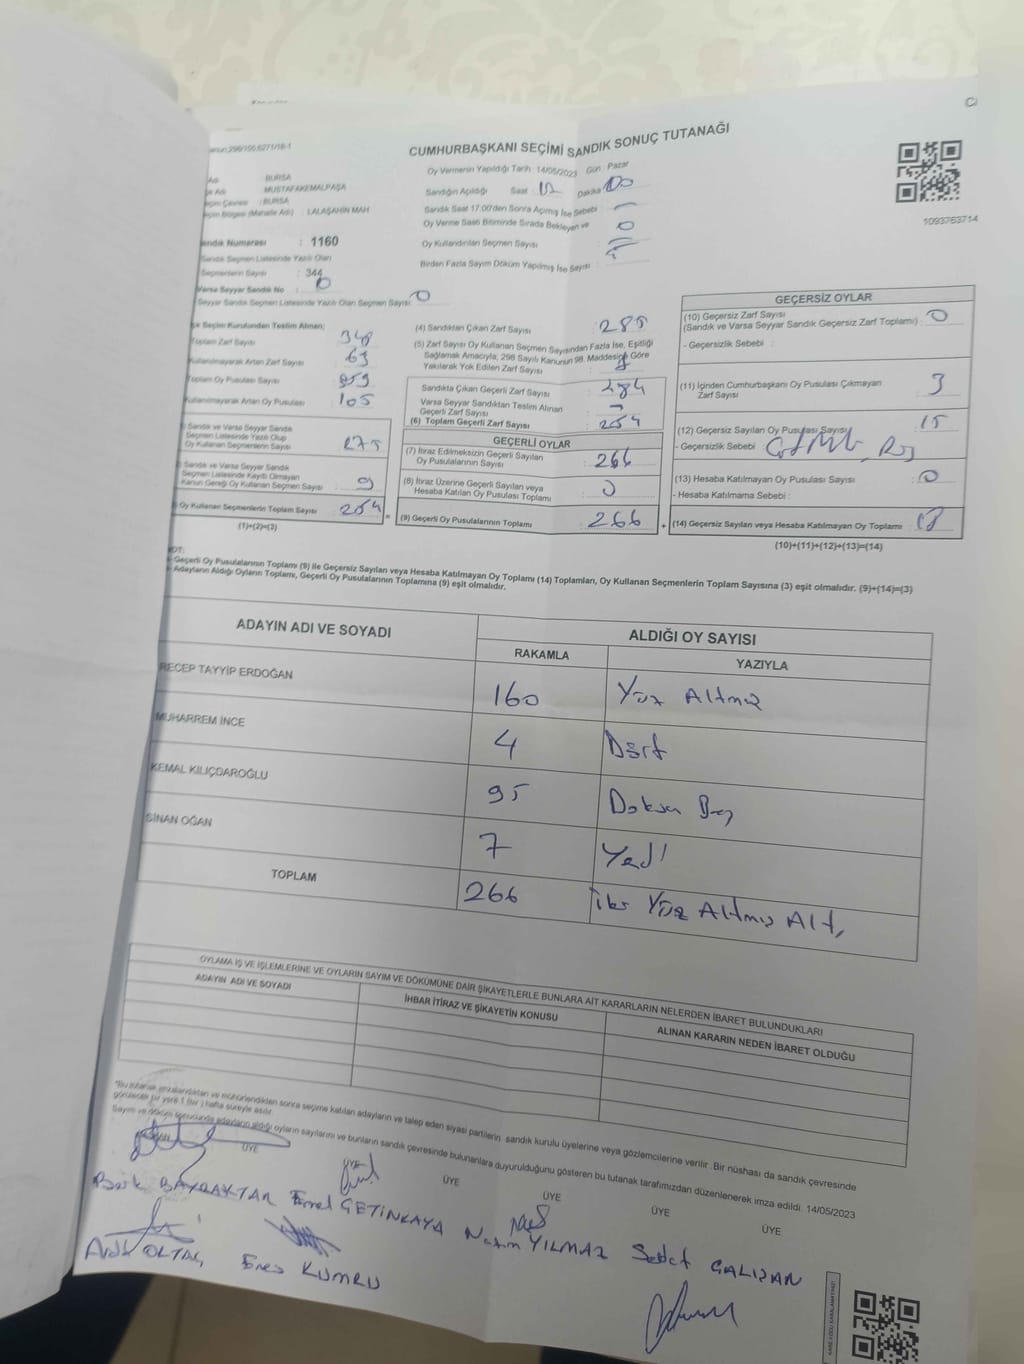 CUMHURBAŞKANI SEÇİMİ SANDIK SONUÇ TUTANAĞI
Oy Vermenin Yapıldığı Tarih : 14/05/2023 Gün : Pazar
BURSA
MUSTAFAKEMALPAŞA
BURSA
LALAŞAHİN MAH
Sandığın Açıldığı Saat Dakika 00
Sandık Saat 17:00'den Sonra Açımış İse Sebebi
Oy Verme Saati Bitiminde Sırada Bekleyen ve 0
Oy Kullandırılan Seçmen Sayısı
Birden Fazla Sayım Döküm Yapılmış İse Sayısı :
1093763714
Sandık Numarası : 1160
Sandık Seçmen Listesinde Yazılı Olan
Seçmenlerin Sayısı : 344
Varsa Seyyar Sandık No : 0
Seyyar Sandık Seçmen Listesinde Yazılı Olan Seçmen Sayısı : 0
İlçe Seçim Kurulundan Teslim Alınan;
Toplam Zarf Sayısı
Kullanılmayarak Artan Zarf Sayısı 63
Toplam Oy Pusulası Sayısı
Kullanılmayarak Artan Oy Pusulası 105
Sandık ve Varsa Seyyar Sandık
Seçmen Listesinde Yazılı Olup
Oy Kullanan Seçmenlerin Sayısı 275
Sandık ve Varsa Seyyar Sandık
Seçmen Listesinde Kayıtlı Olmayan
Kanun Gereği Oy Kullanan Seçmen Sayısı 9
Oy Kullanan Seçmenlerin Toplam Sayısı 284
(1)+(2)=(3)
(4) Sandıktan Çıkan Zarf Sayısı 285
(5) Zarf Sayısı Oy Kullanan Seçmen Sayısından Fazla İse, Eşitliği
Sağlamak Amacıyla; 298 Sayılı Kanunun 98. Maddesine Göre
Yakılarak Yok Edilen Zarf Sayısı
Sandıkta Çıkan Geçerli Zarf Sayısı 284
Varsa Seyyar Sandıktan Teslim Alınan
Geçerli Zarf Sayısı
(6) Toplam Geçerli Zarf Sayısı 284
GEÇERLİ OYLAR
(7) İtiraz Edilmeksizin Geçerli Sayılan
Oy Pusulalarının Sayısı 266
(8) İtiraz Üzerine Geçerli Sayılan veya
Hesaba Katılan Oy Pusulası Toplamı 0
(9) Geçerli Oy Pusulalarının Toplamı 266
GEÇERSİZ OYLAR
(10) Geçersiz Zarf Sayısı
(Sandık ve Varsa Seyyar Sandık Geçersiz Zarf Toplamı) : 0
- Geçersizlik Sebebi :
(11) İçinden Cumhurbaşkanı Oy Pusulası Çıkmayan
Zarf Sayısı 3
(12) Geçersiz Sayılan Oy Pusulası Sayısı 15
- Geçersizlik Sebebi
(13) Hesaba Katılmayan Oy Pusulası Sayısı : 0
- Hesaba Katılmama Sebebi :
(14) Geçersiz Sayılan veya Hesaba Katılmayan Oy Toplamı 18
(10)+(11)+(12)+(13)=(14)
NOT:
- Geçerli Oy Pusulalarının Toplamı (9) ile Geçersiz Sayılan veya Hesaba Katılmayan Oy Toplamı (14) Toplamları, Oy Kullanan Seçmenlerin Toplam Sayısına (3) eşit olmalıdır. (9)+(14)=(3)
- Adayların Aldığı Oyların Toplamı, Geçerli Oy Pusulalarının Toplamına (9) eşit olmalıdır.
ADAYIN ADI VE SOYADI
ALDIĞI OY SAYISI
RAKAMLA YAZIYLA
RECEP TAYYİP ERDOĞAN 160 Yüz Altmış
MUHARREM İNCE 4 Dört
KEMAL KILIÇDAROĞLU 95 Doksan Beş
SİNAN OĞAN 7 Yedi
TOPLAM 266 İki Yüz Altmış Altı
OYLAMA İŞ VE İŞLEMLERİNE VE OYLARIN SAYIM VE DÖKÜMÜNE DAİR ŞİKAYETLERLE BUNLARA AİT KARARLARIN NELERDEN İBARET BULUNDUKLARI
ADAYIN ADI VE SOYADI
İHBAR İTİRAZ VE ŞİKAYETİN KONUSU
ALINAN KARARIN NEDEN İBARET OLDUĞU
*Bu tutanak imzalandıktan ve mühürlendikten sonra seçime katılan adayların ve talep eden siyasi partilerin sandık kurulu üyelerine veya gözlemcilerine verilir. Bir nüshası da sandık çevresinde
görülecek bir yere 1 (bir) hafta süreyle asılır.
Sayım ve döküm sonucunda adayların aldığı oyların sayılarını ve bunların sandık çevresinde bulunanlara duyurulduğunu gösteren bu tutanak tarafımızdan düzenlenerek imza edildi. 14/05/2023
ÜYE ÜYE ÜYE ÜYE ÜYE
BAYRAKTAR Emel ÇETİNKAYA YILMAZ Sedat ÇALIŞAN
OLTAÇ Enes KUMRU